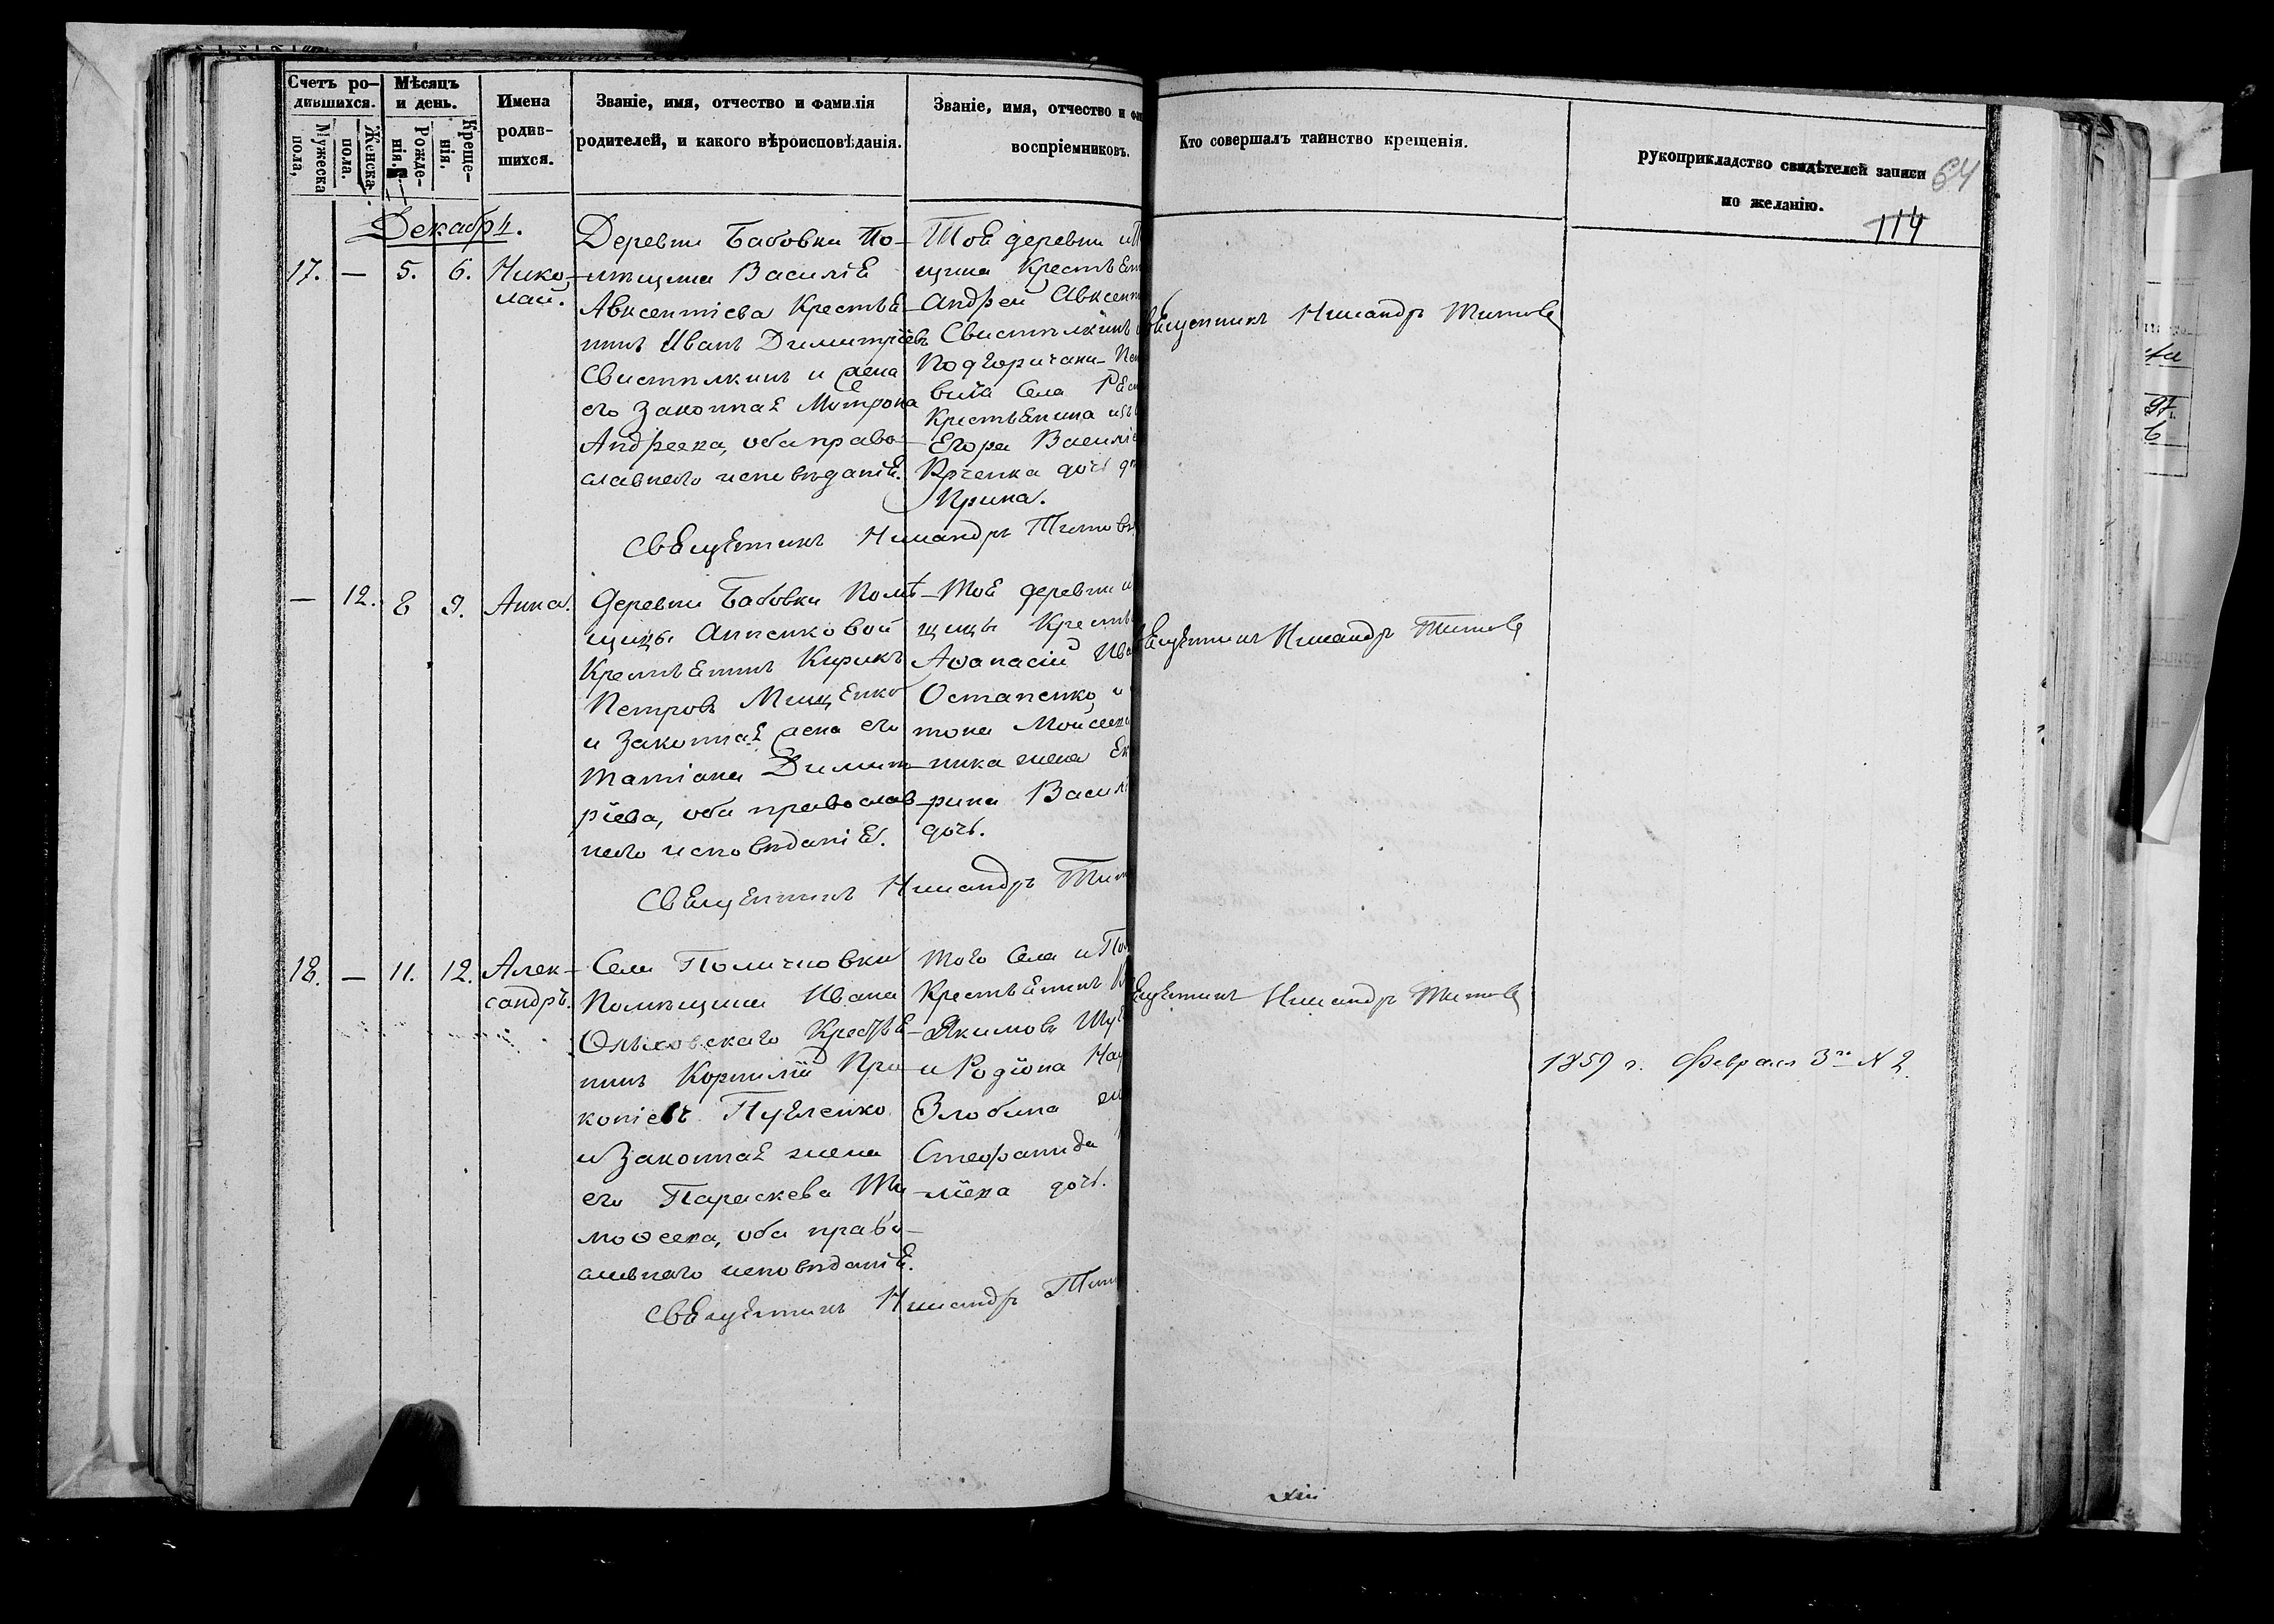 Счетъ ро-
дившихся.
Мужеска
пола,
Женска
пола.
Мѣсяцъ
и день.
Рожде-
нія.
Креще-
нія.
Имена
родив-
шихся.
Званіе, имя, отчество и фамилія
родителей, и какого вѣроисповѣданія.
Званіе, имя, отчество и
воспріемниковъ.
Кто совершалъ таинство крещенія.
рукоприкладство свидѣтелей записи
по желанію.
64
114
Декабрь.
17. — 5. 6. Нико-
лай.
Деревни Бабовки По-
мѣщика Василія
Авксентіева Крестья-
нинъ Иванъ Димитріевъ
Свистѣлкинъ и жена
его Законная Матрона
Андреева, оба право-
славнаго исповѣданія.
Той деревни и
щика Крестьян
Андрей Авксент
Свистѣлкинъ
Села
Крестьянина
Егора Василі
дочь
Ирина.
Священникъ Никандръ Титовъ
Священникъ Никандръ Титовъ
— 12. 8 9. Анна.
Деревни Бабовки Помѣ-
щицы Анненковой
Крестьянинъ Кирикъ
Петровъ Мищенко
и Законная жена его
Татіана Димит-
ріева, оба православ-
наго исповѣданія.
Той деревни и
щицы Кресть
Аѳанасій Ива
Остапенко и
тона Моисеен
жена Ек
рина Василі
дочь.
Священникъ Никандръ Тит
ященникъ Никандръ Титовъ
18. — 11. 12. Алек-
сандръ.
Села Поличновки
Помѣщика Ивана
Ольховскаго Крестья-
нинъ Корнилій Про-
копіевъ Павленко
и Законная жена
его Параскева Ти-
моѳеева, оба право-
славнаго исповѣданія.
Того Села и По
Крестьянинъ
Якимовъ
и Родіона На
Злобина
Стефанида
ліева дочь.
Священникъ Никандръ Тит
ященникъ Никандръ Титовъ
1859 г. Февраля 3го № 2.